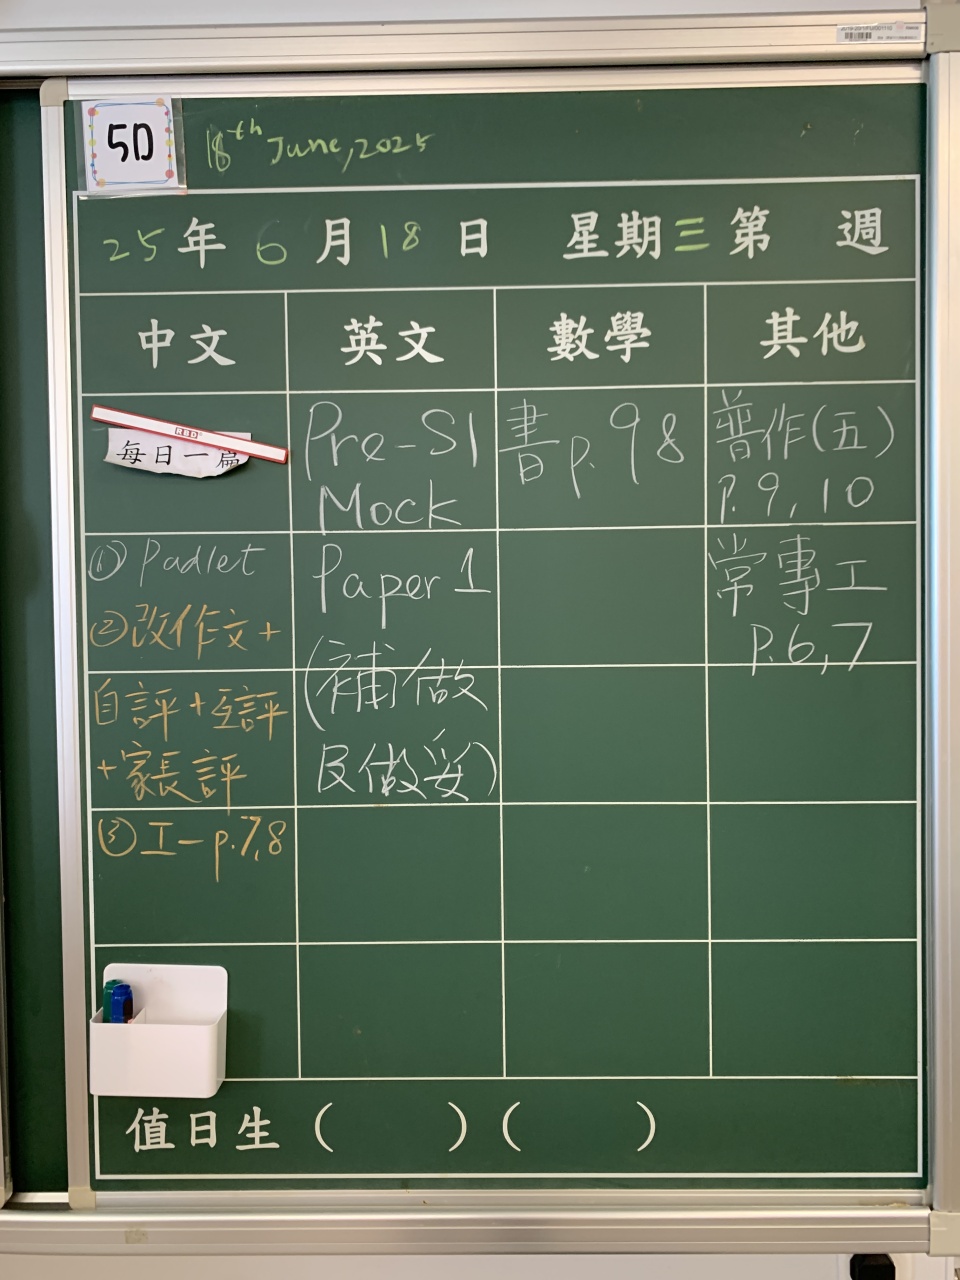 5D
18th June, 2025
25年6月18日 星期三第 週
中文 英文 數學 其他
RED
每日一篇
① Padlet
②改作文+
自評+互評
+家長評
③工一p.7,8
Pre-S1
Mock
Paper 1
(補做
及做妥)
書p.98
普作(五)
p.9,10
常專工
p.6,7
值日生( )( )